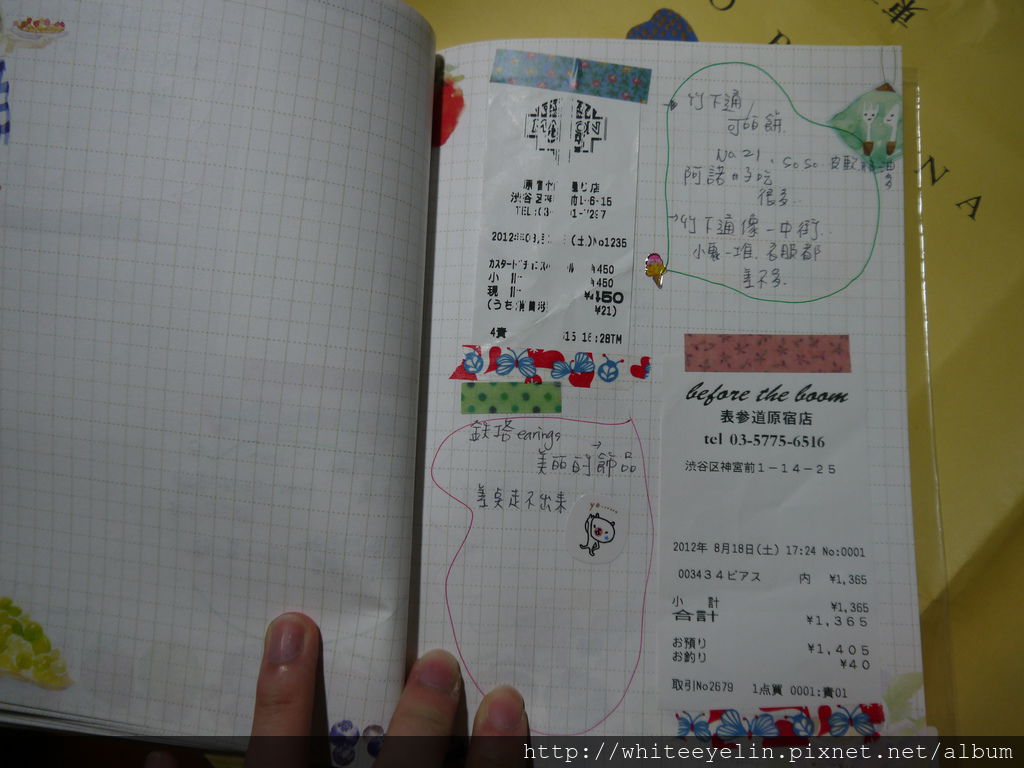 竹下通
可麗餅.
No 21. so so. 皮軟.
阿諾 好吃
很多.
→竹下通像一中街.
小東一堆.衣服都
差不多.
原宿
渋谷区
1-6-15
TEL:03
2012年08
(土)No1235
¥450
小 計 ¥450
現 計 ¥450
(うち消費税 ¥21)
4責
16:28TM
earings
→
美丽的飾品
差點走不出来
ya......
before the boom
表参道原宿店
tel 03-5775-6516
渋谷区神宮前1-14-25
2012年 8月18日(土) 17:24 No:0001
003434ピアス 内 ¥1,365
小 計 ¥1,365
合計 ¥1,365
お預り ¥1,405
お釣り ¥40
取引No2679 1点買 0001:責01
N A
http://whiteeyelin.pixnet.net/album